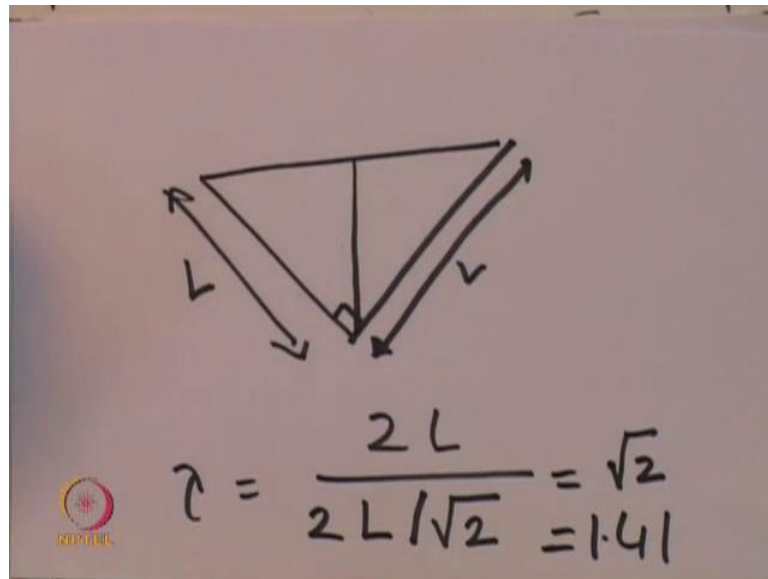 L
L
τ = 2L / 2L/√2 = √2
= 1.41
NPTEL